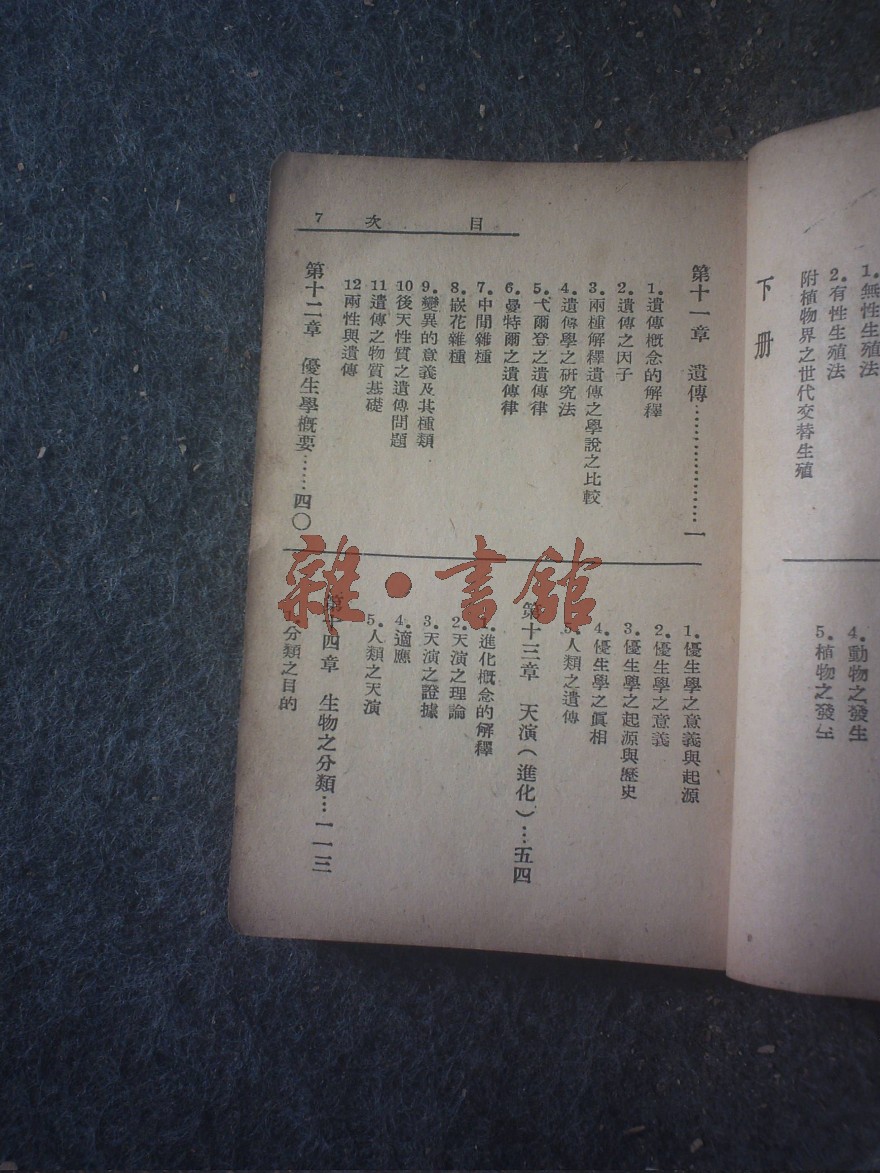 1.無性生殖法
2.有性生殖法
附植物界之世代交替生殖
4.動物之發生
5.植物之發生
下册
目次 7
第十一章 遺傳………………一
1.遺傳概念的解釋
2.遺傳之因子
3.兩種解釋遺傳之學說之比較
4.遺傳學之研究法
5.弋爾登之遺傳律
6.曼特爾之遺傳律
7.中間雜種
8.嵌花雜種
9.變異的意義及其種類
10後天性質之遺傳問題
11遺傳之物質基礎
12兩性與遺傳
第十二章 優生學概要……四〇
1.優生學之意義與起源
2.優生學之意義
3.優生學之起源與歷史
4.優生學之眞相
5.人類之遺傳
第十三章 天演(進化)…五四
1.進化概念的解釋
2.天演之理論
3.天演之證據
4.適應
5.人類之天演
第十四章 生物之分類…一一三
1.分類之目的
雜·書館